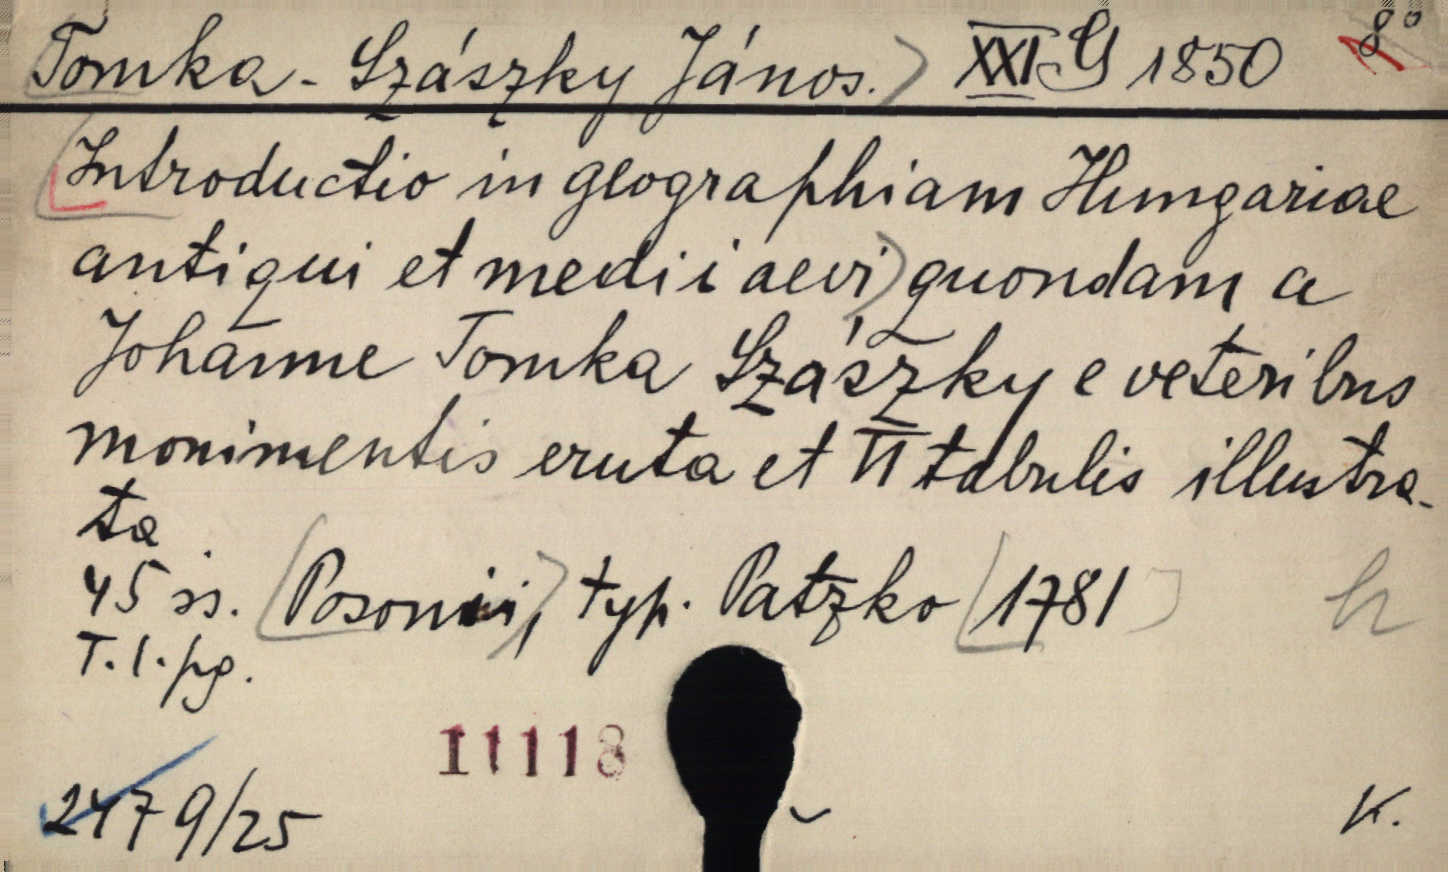 Tomka-Szászky János. XXI G 1850 8°
Introductio in geographiam Hungariae
antiqui et medii aevi quondam a
Johanne Tomka Szászky e veteribus
monimentis eruta et II tabulis illustra-
ta
45 ss. Posonii, typ. Patzko 1781 h
T. I. pg.
11118
2479/25 K.